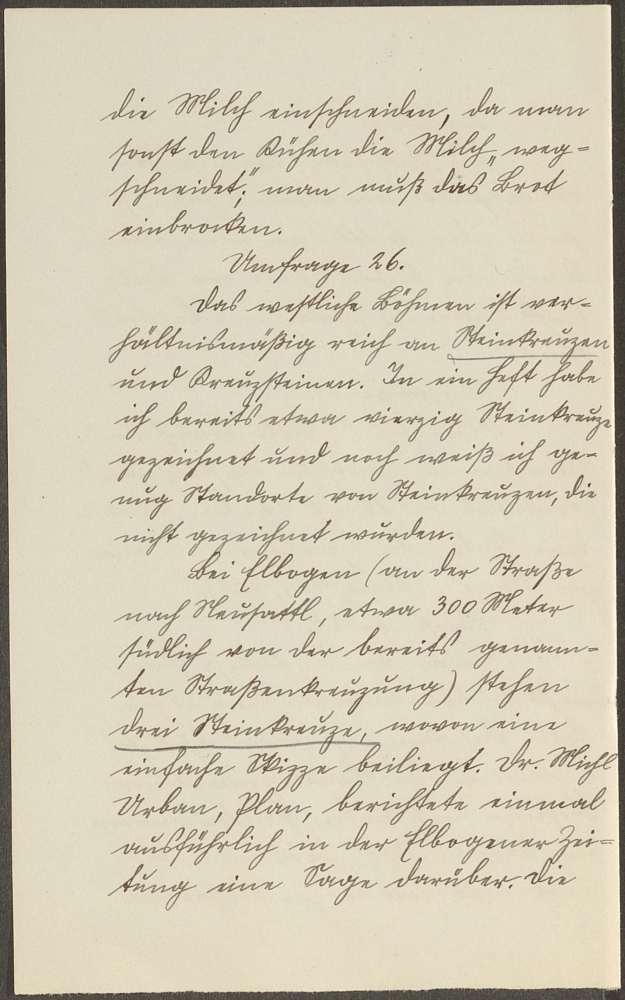 die Milch einschneiden, da man
sonst den Kühen die Milch „weg-
schneidet“; man muß das Brot
einbrocken.
Umfrage 26.
Das westliche Böhmen ist ver-
hältnismäßig reich an Steinkreuzen
und Kreuzsteinen. In ein Heft habe
ich bereits etwa vierzig Steinkreuze
gezeichnet und noch weiß ich ge-
nug Standorte von Steinkreuzen, die
nicht gezeichnet wurden.
Bei Elbogen (an der Straße
nach Neusattl, etwa 300 Meter
südlich von der bereits genann-
ten Straßenkreuzung) stehen
drei Steinkreuze, wovon eine
einfache Skizze beiliegt. Dr. Michl
Urban, Plan, berichtete einmal
ausführlich in der Elbogener Zei-
tung eine Sage darüber. Die